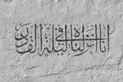 إنا أنزلناه في ليلة القدر